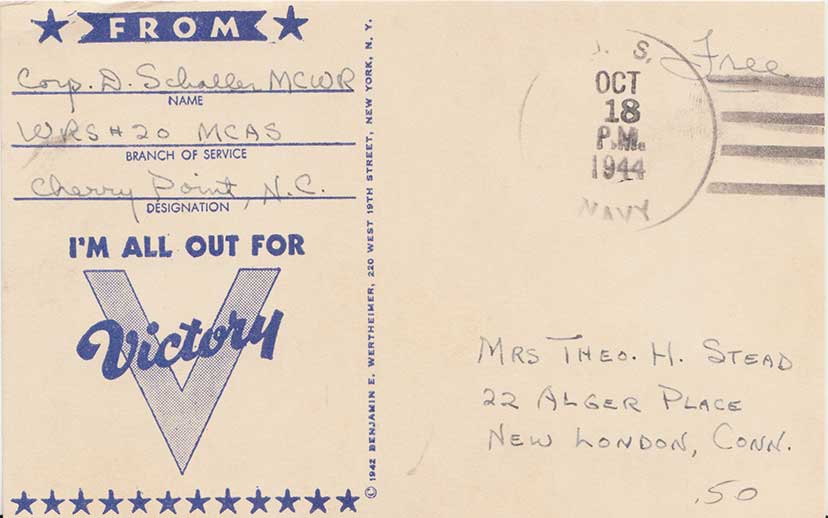 FROM
Corp. D. Schaller MCWR
NAME
WRS #20 MCAS
BRANCH OF SERVICE
Cherry Point, N.C.
DESIGNATION
I'M ALL OUT FOR
Victory
© 1942 BENJAMIN E. WERTHEIMER, 220 WEST 19TH STREET, NEW YORK, N. Y.
S.
OCT
18
P.M.
1944
NAVY
Free
MRS THEO. H. STEAD
22 ALGER PLACE
NEW LONDON, CONN.
.50